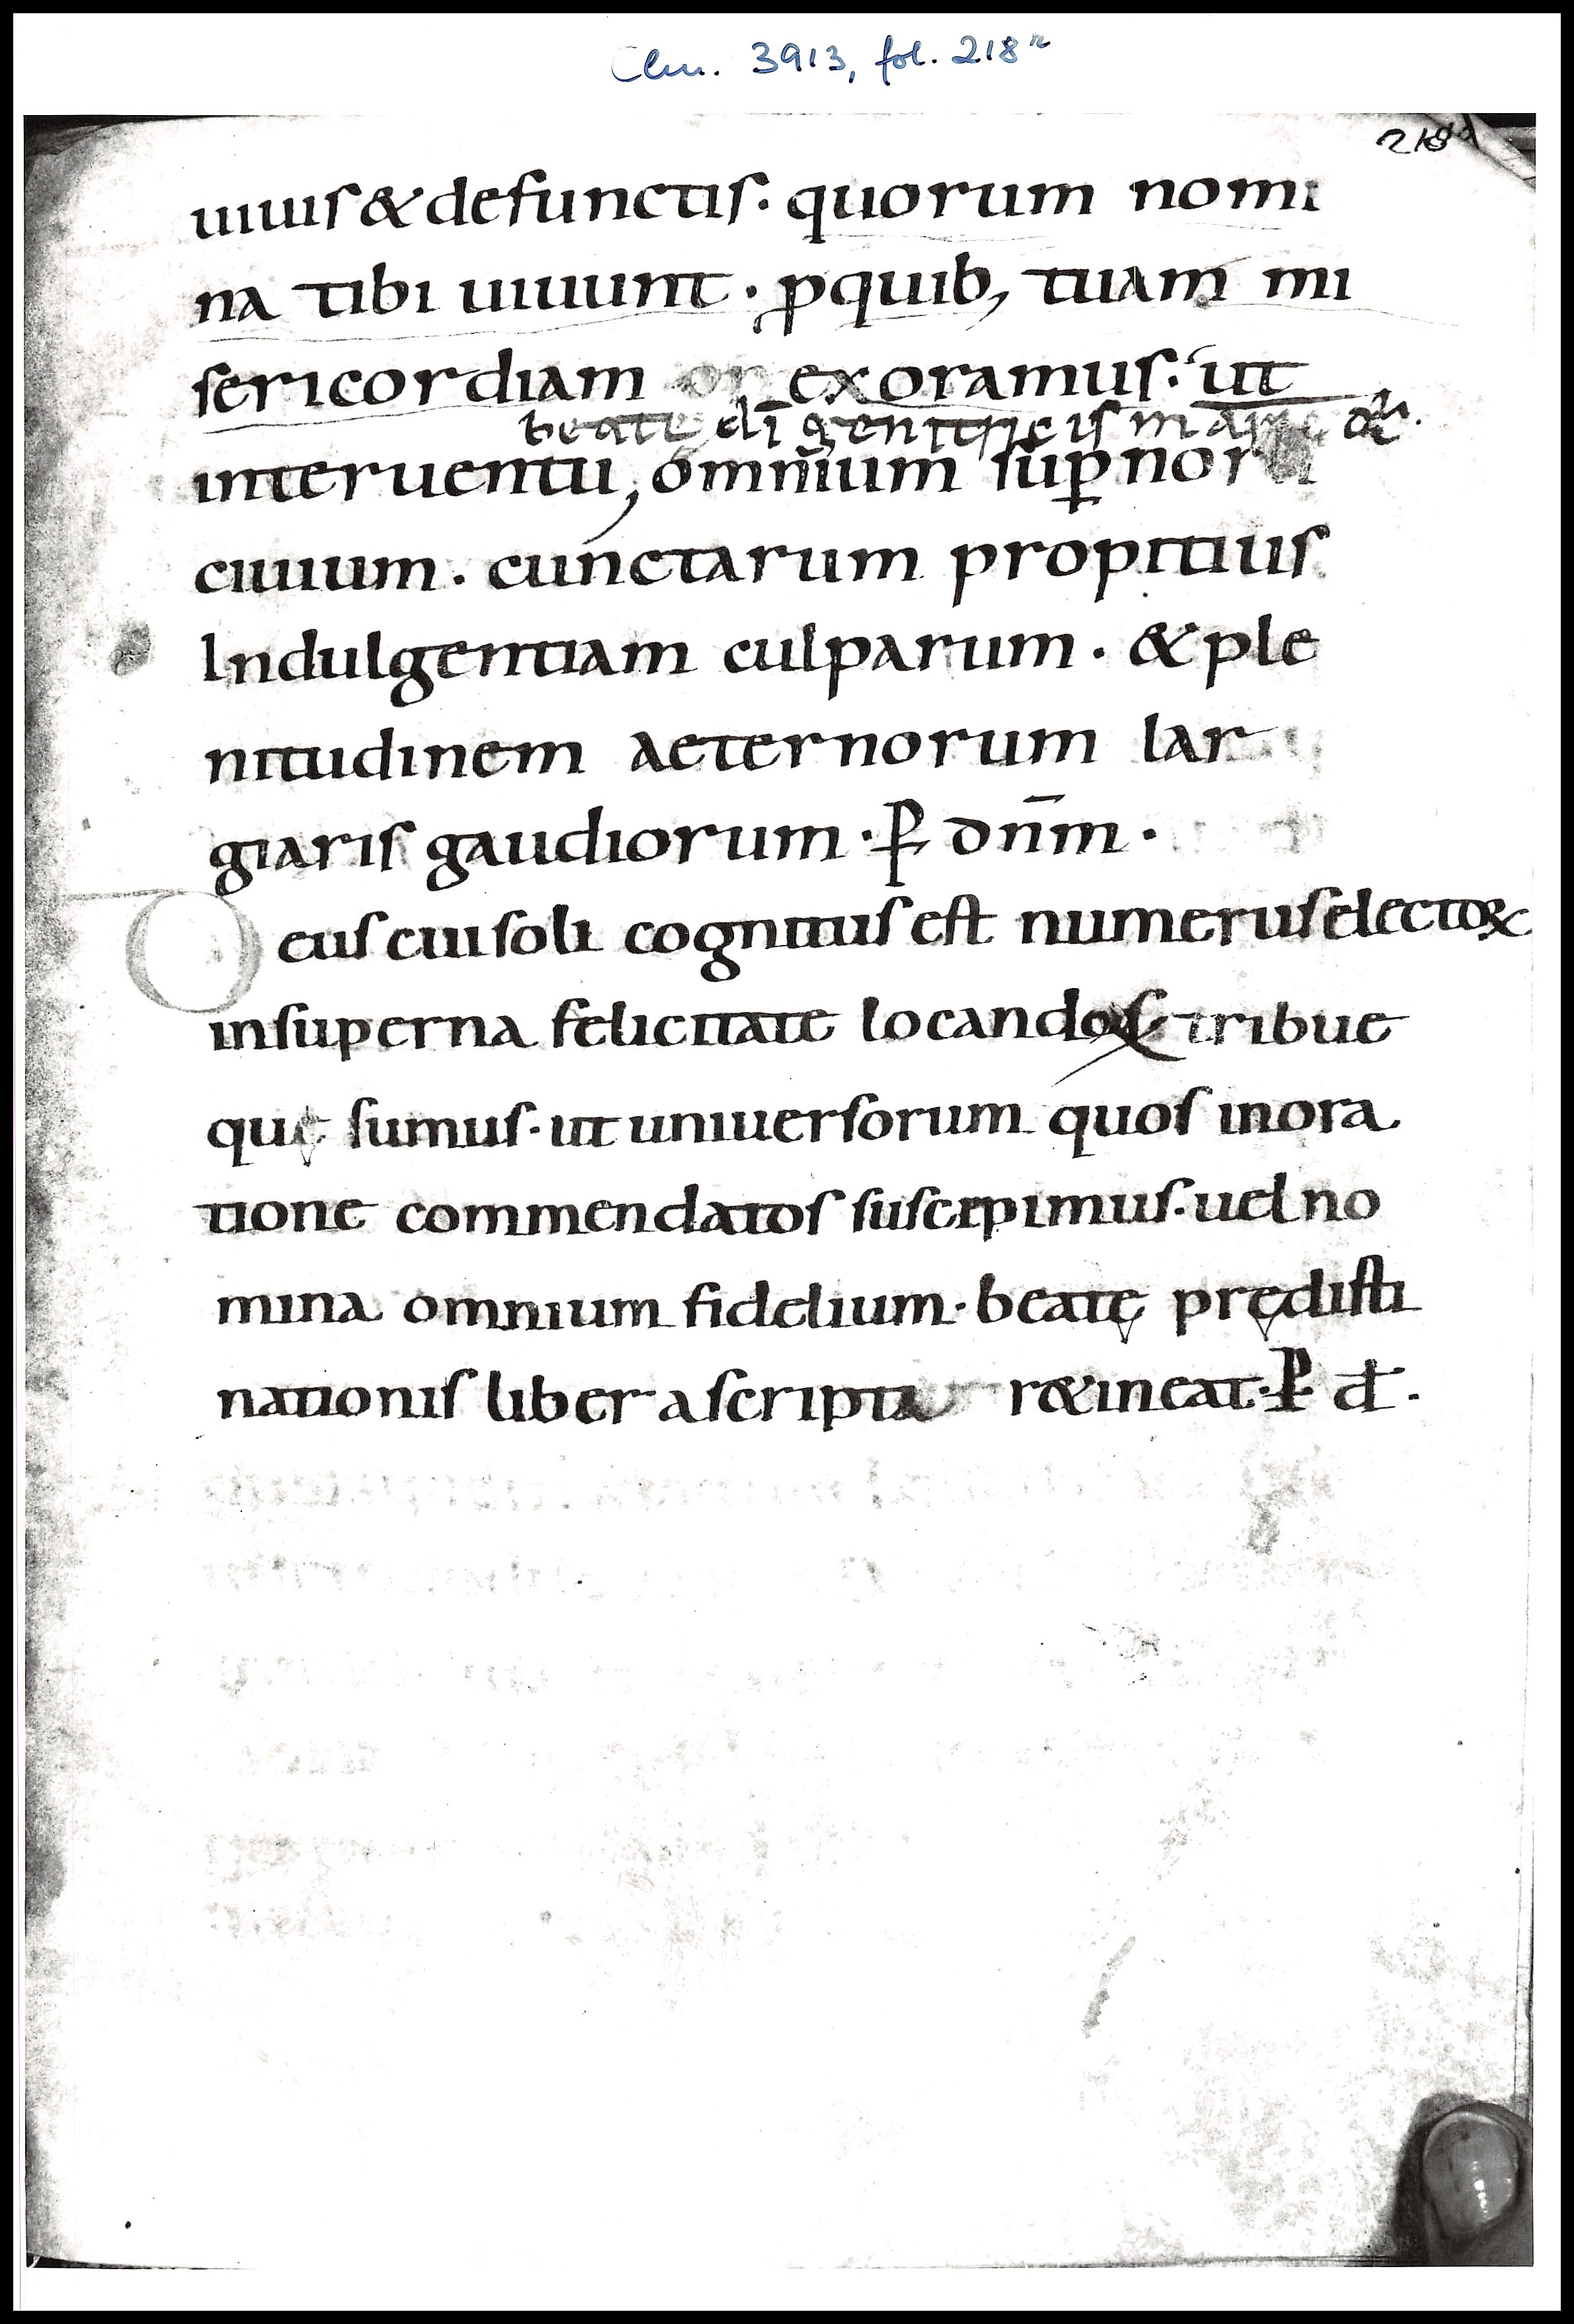 Clm. 3913, fol. 218r
218
uiuis & defunctis· quorum nomi
na tibi uiuunt· ꝓ quib, tuam mi
sericordiam exoramus· ut
beate di̅ genitricis marie &
interuentu, omnium suꝑnor
ciuium· cunctarum propitius
Indulgentiam culparum· & ple
nitudinem aeternorum lar
giaris gaudiorum· ꝑ dn̅m·
Deus cui soli cognitus est numerus electoꝝ
in superna felicitate locandos tribue
quę sumus· ut uniuersorum quos in ora
tione commendatos suscepimus· uel no
mina omnium fidelium· beatę prędisti
nationis liber ascripta r&ineat· ꝑ đ·